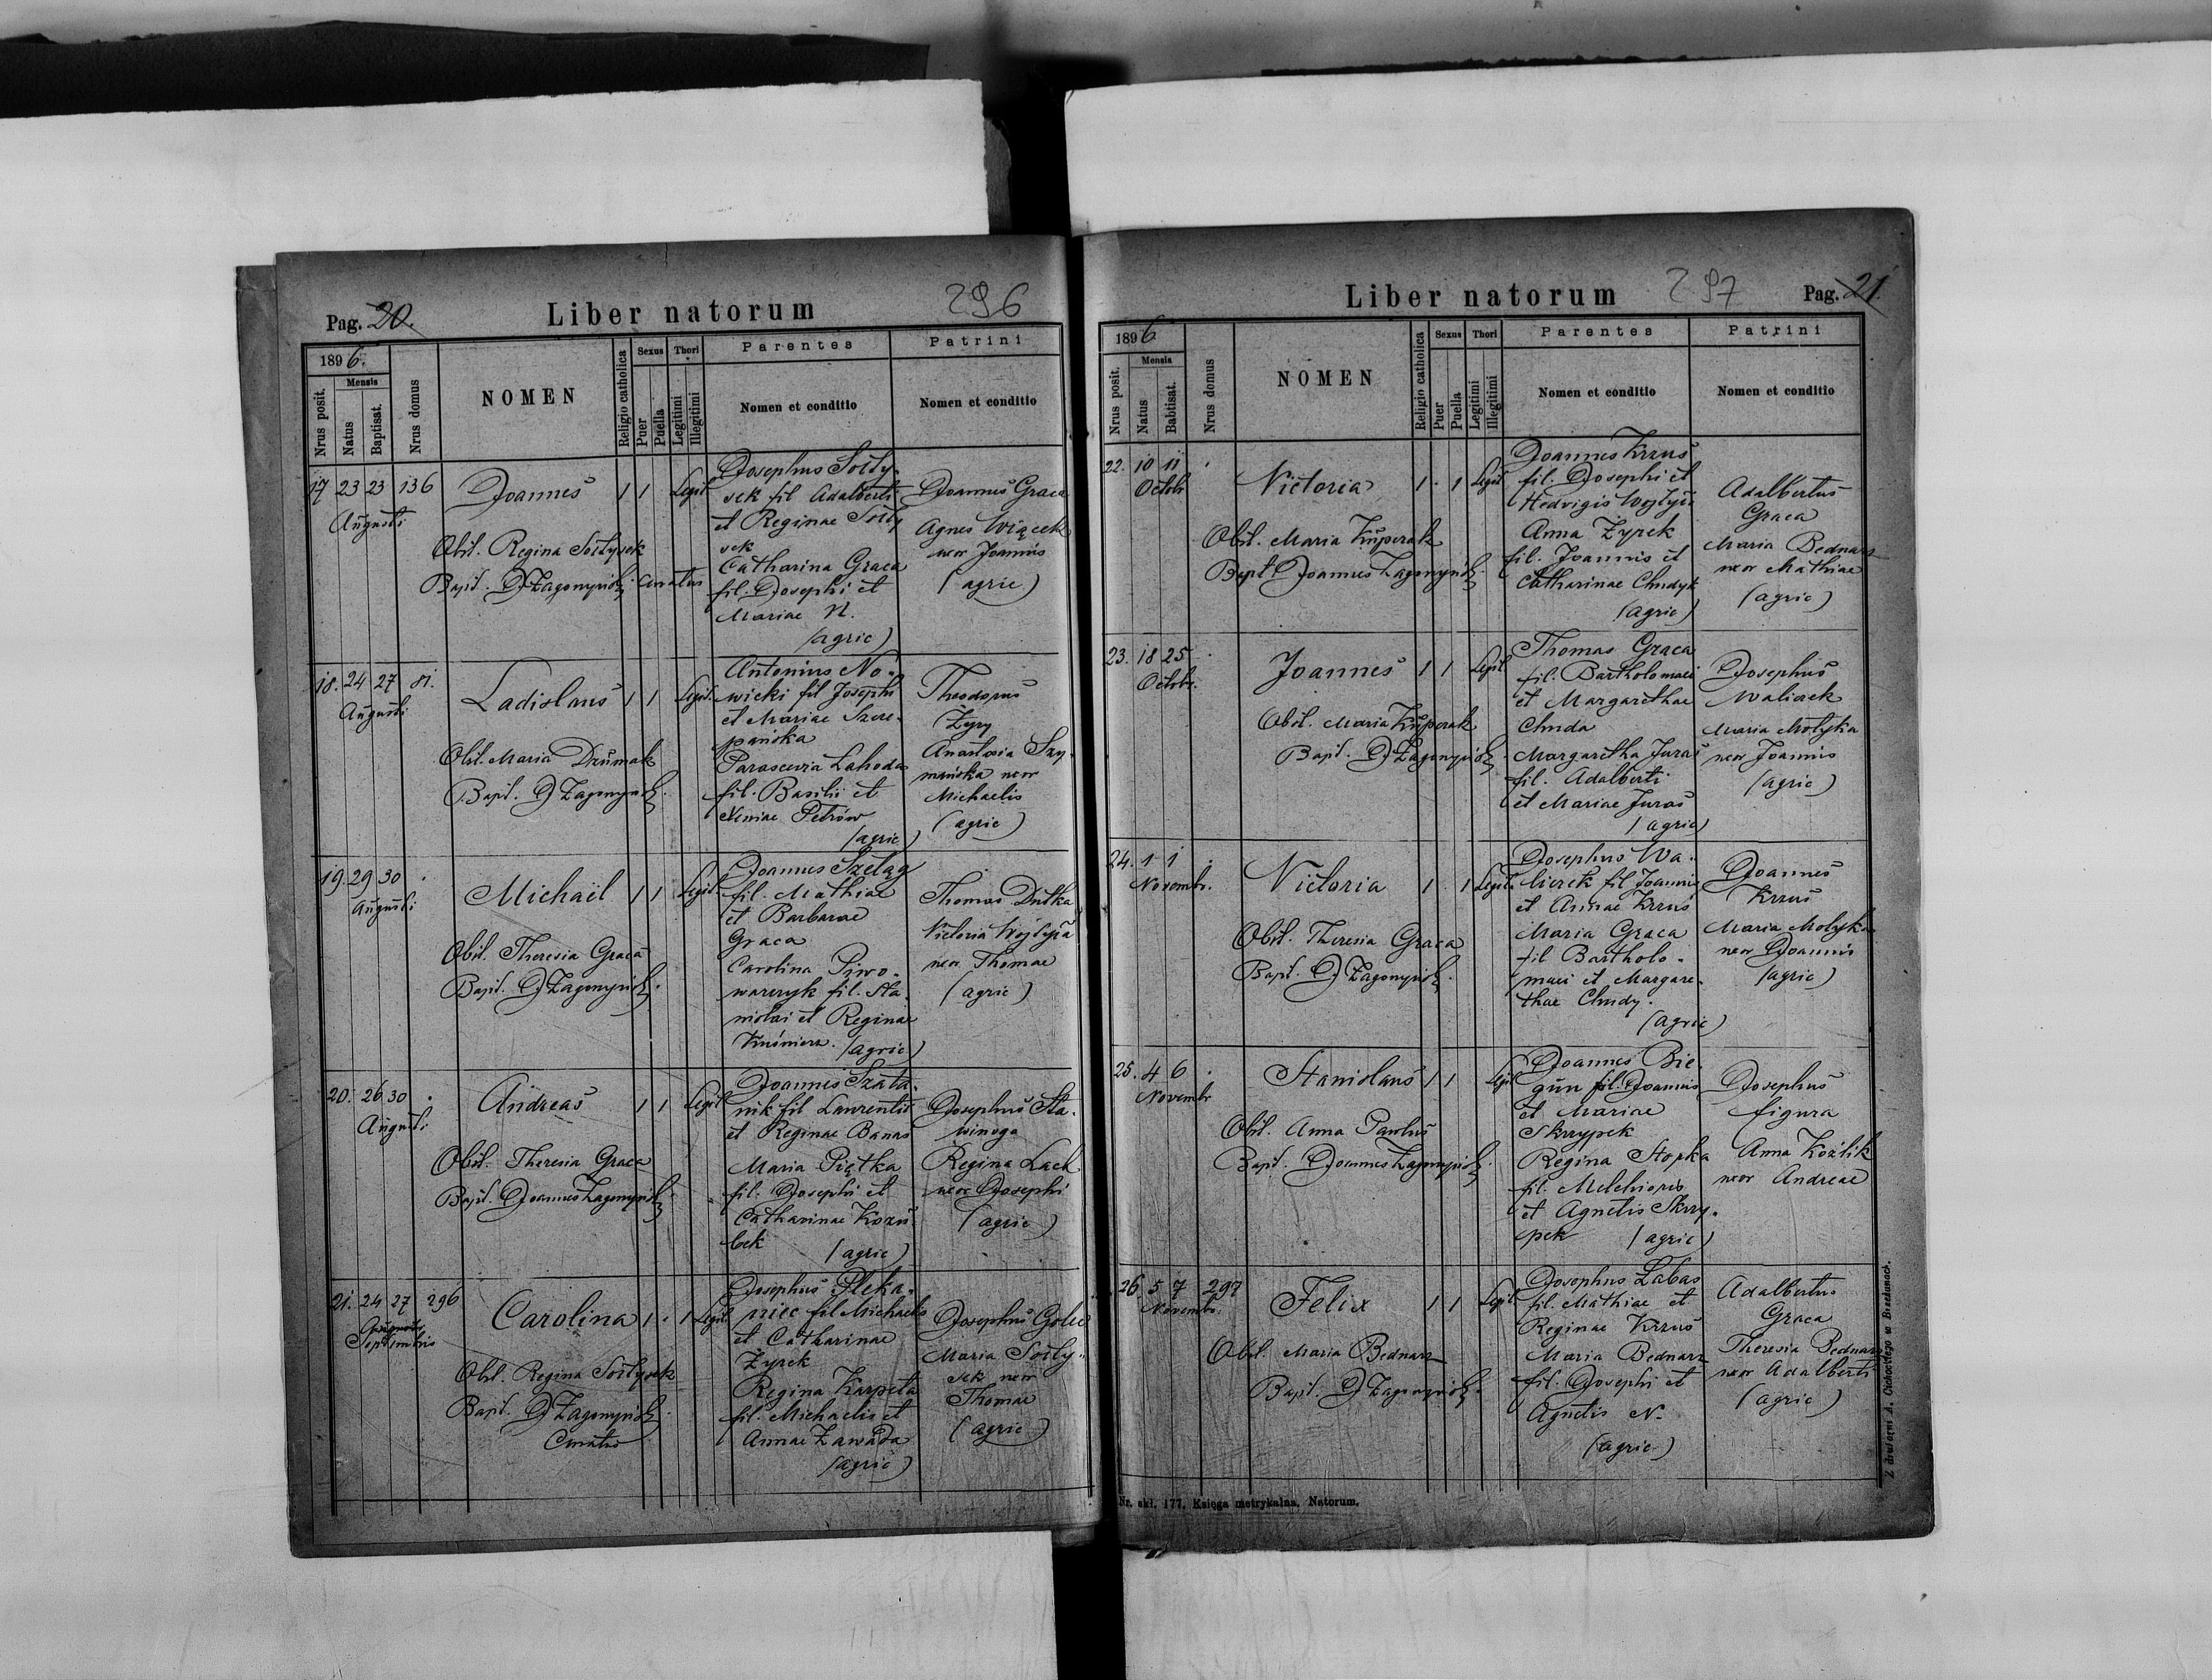 Pag. 20.
Liber natorum
296
1896.
Nrus posit.
Mensis
Natus
Baptisat.
Nrus domus
NOMEN
Religio catholica
Sexus
Puer
Puella
Thori
Legitimi
Illegitimi
Parentes
Nomen et conditio
Patrini
Nomen et conditio
17 23 23 136
Augusti
Joannes 1 1 Legit
Obst. Regina Sołtysek
Bapt. J Zagonyński Curatus
Josephus Sołty-
sek fil Adalberti
et Reginae Sołty
sek
Catharina Graca
fil. Josephi et
Mariae N.
(agric)
Joannes Graca
Agnes Wiącek
uxor Joannis
(agric)
18. 24 27 81.
Augusti
Ladislaus 1 1 Legit.
Obst. Maria Drumak
Bapt. J
Antonius No-
wicki fil Josephi
et Mariae Szcze-
pańska
Parascevia Lahoda
fil. Basilii et
Xeniae Petrów
(agric)
Theodorus
Żyry
Anastasia Szy-
mańska uxor
Michaelis
(agric)
19. 29 30
Augusti
Michaël 1 1 Legit.
Obst. Theresia Graca
Bapt. J
Joannes Szeląg
fil. Mathiae
et Barbarae
Graca
Carolina Piwo-
warczyk fil. Sta-
nislai et Reginae
Kuśnierz. (agric)
Thomas Dutka
Victoria Wojtyła
uxor Thomae
(agric)
20. 26 30
Augusti
Andreas 1 1 Legit
Obst. Theresia Graca
Bapt. Joannes
Joannes Szata-
nik fil Laurentii
et Reginae Banas
Maria Piętka
fil. Josephi et
Catharinae Kozu-
bek (agric)
Josephus Sta-
winoga
Regina Lach
uxor Josephi
(agric)
21. 24 27 296
Augusti
Septembris
Carolina 1 1 Legit
Obst. Regina Sołtysek
Bapt. J
Curatus
Josephus Pleka-
niec fil Michaelis
et Catharinae
Żyrek
Regina Karpeta
fil. Michaelis et
Annae Zawada
(agric)
Josephus Golec
Maria Sołty-
sek uxor
Thomae
(agric)
Liber natorum
297
Pag. 21.
1896
Nrus posit.
Mensis
Natus
Babtisat.
Nrus domus
NOMEN
Religio catholica
Sexus
Puer
Puella
Thori
Legitimi
Illegitimi
Parentes
Nomen et conditio
Patrini
Nomen et conditio
22. 10 11
Octobr
Victoria 1 1 Legit
Obst. Maria Kuperak
Bapt. Joannes
Joannes Krzus
fil. Josephi et
Hedvigis Wojtyła
Anna Żyrek
fil. Joannis et
Catharinae Chudyk
(agric)
Adalbertus
Graca
Maria Bednarz
uxor Mathiae
(agric)
23. 18 25
Octobr.
Joannes 1 1 Legit
Obst. Maria Kuperak
Bapt. J
Thomas Graca
fil. Bartholomaei
et Margarethae
Chuda
Margaretha Juras
fil. Adalberti
et Mariae Juras
(agric)
Josephus
Walierek
Maria Motyka
uxor Joannis
(agric)
24. 1 1
Novembr.
Victoria 1 1 Legit.
Obst. Theresia Graca
Bapt. J
Josephus Wa-
lierek fil Joannis
et Annae Krzus
Maria Graca
fil Bartholo-
maei et Margare-
thae Chudy.
(agric)
Joannes
Krzus
Maria Motyka
uxor Joannis
(agric)
25. 4 6
Novembr
Stanislaus 1 1 Legit
Obst. Anna Pawlus
Bapt. Joannes
Joannes Bie-
gun fil. Joannis
et Mariae
Skrzypek
Regina Stopka
fil. Melchioris
et Agnetis Skrzy-
pek (agric)
Josephus
figura
Anna Koźlik
uxor Andreae
26 5 7 297
Novembr.
Felix 1 1 Legit
Obst. Maria Bednarz
Bapt. J
Josephus Łabas
fil. Mathiae et
Reginae Krzus
Maria Bednarz
fil. Josephi et
Agnetis N.
(agric.)
Adalbertus
Graca
Theresia Bednarz
uxor Adalberti
(agric)
Nr. skł. 177. Księga metrykalna. Natorum.
Z drukarni A. Cichockiego w Brzeżanach.